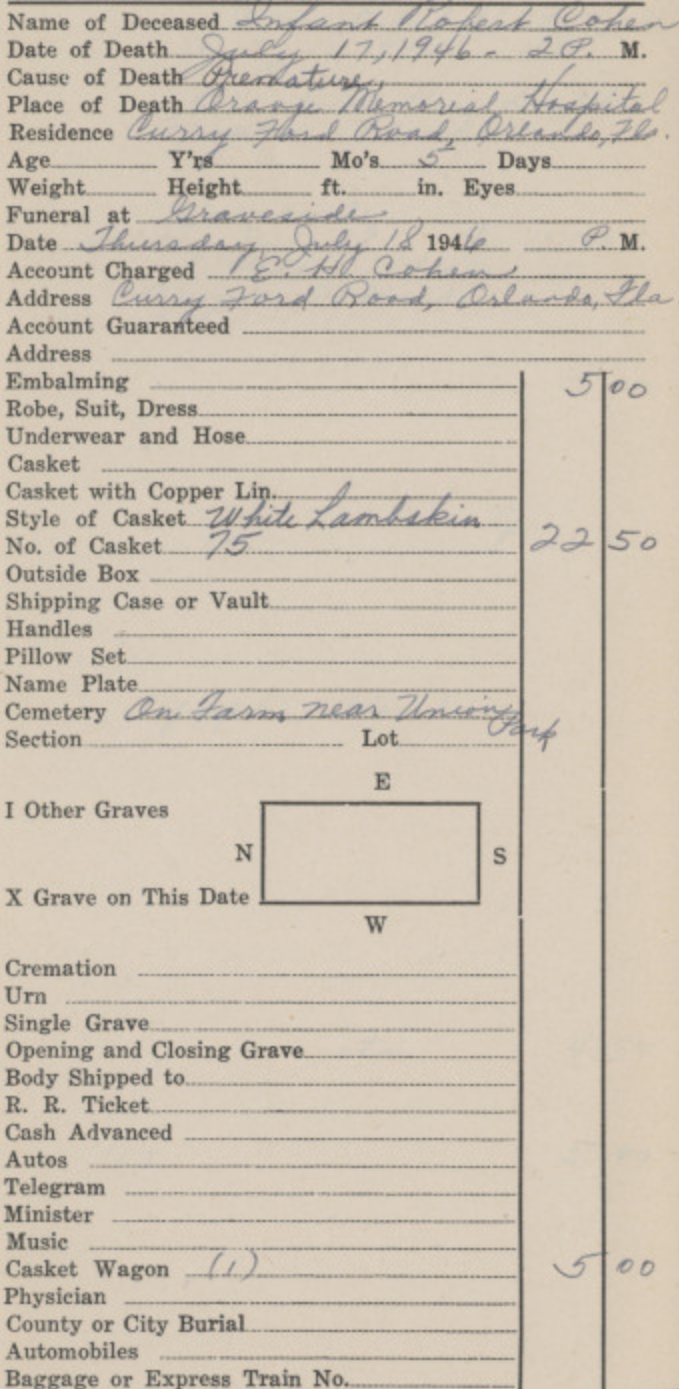 Name of Deceased Infant Robert Cohen
Date of Death July 17, 1946 - 2 P. M.
Cause of Death Premature
Place of Death Orange Memorial Hospital
Residence Curry Ford Road, Orlando, Fla.
Age Y'rs Mo's 5 Days
Weight Height ft. in. Eyes
Funeral at Graveside
Date Thursday July 18 1946 P. M.
Account Charged E. H. Cohen
Address Curry Ford Road, Orlando, Fla
Account Guaranteed
Address
Embalming 5 00
Robe, Suit, Dress
Underwear and Hose
Casket
Casket with Copper Lin.
Style of Casket White Lambskin
No. of Casket 75 22 50
Outside Box
Shipping Case or Vault
Handles
Pillow Set
Name Plate
Cemetery On Farm near Union Park
Section Lot
E
I Other Graves
N S
X Grave on This Date
W
Cremation
Urn
Single Grave
Opening and Closing Grave
Body Shipped to
R. R. Ticket
Cash Advanced
Autos
Telegram
Minister
Music
Casket Wagon (1) 5 00
Physician
County or City Burial
Automobiles
Baggage or Express Train No.